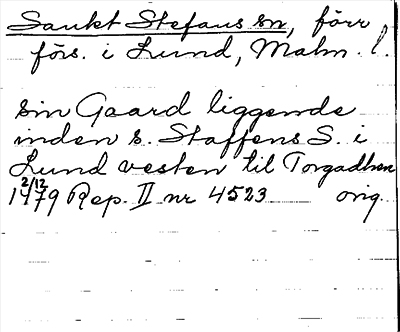 Sankt Stefans sn, förr
förs. i Lund, Malm. l.
sin Gaard liggende
inden s. Staffens S. i
Lund vesten til Torgadhen
2/12
1479 Rep. II nr 4523 orig.